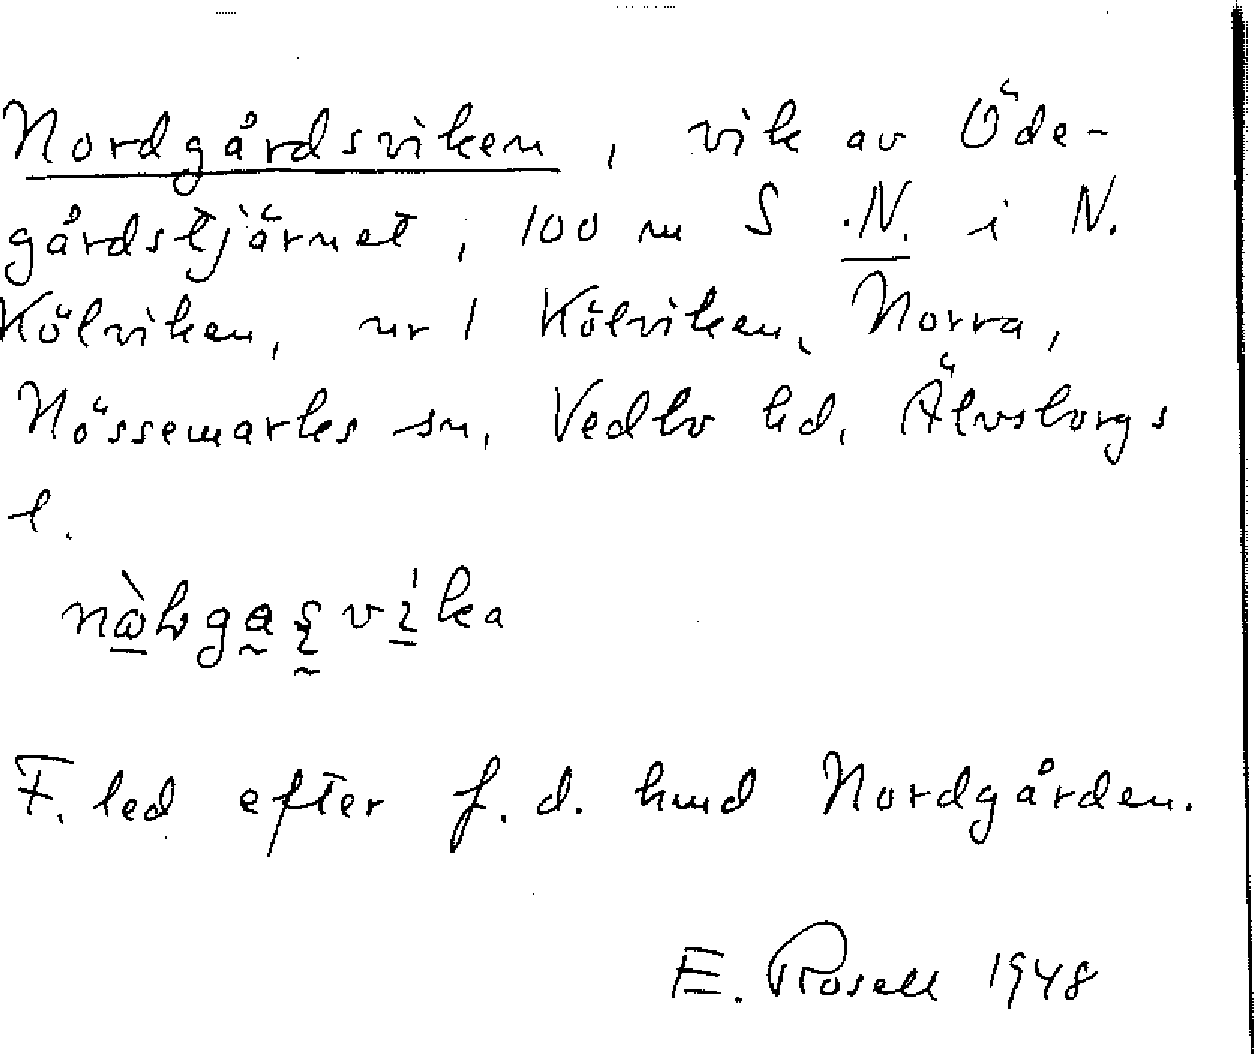 Nordgårdsviken, vik av Öde-
gårdstjärnet, 100 m S .N. i N.
Kölviken, nr 1 Kölviken, Norra,
Nössemarks sn, Vedbo hd, Älvsborgs
l.
F. led efter f. d. hmd Nordgården.
E. Rosell 1948